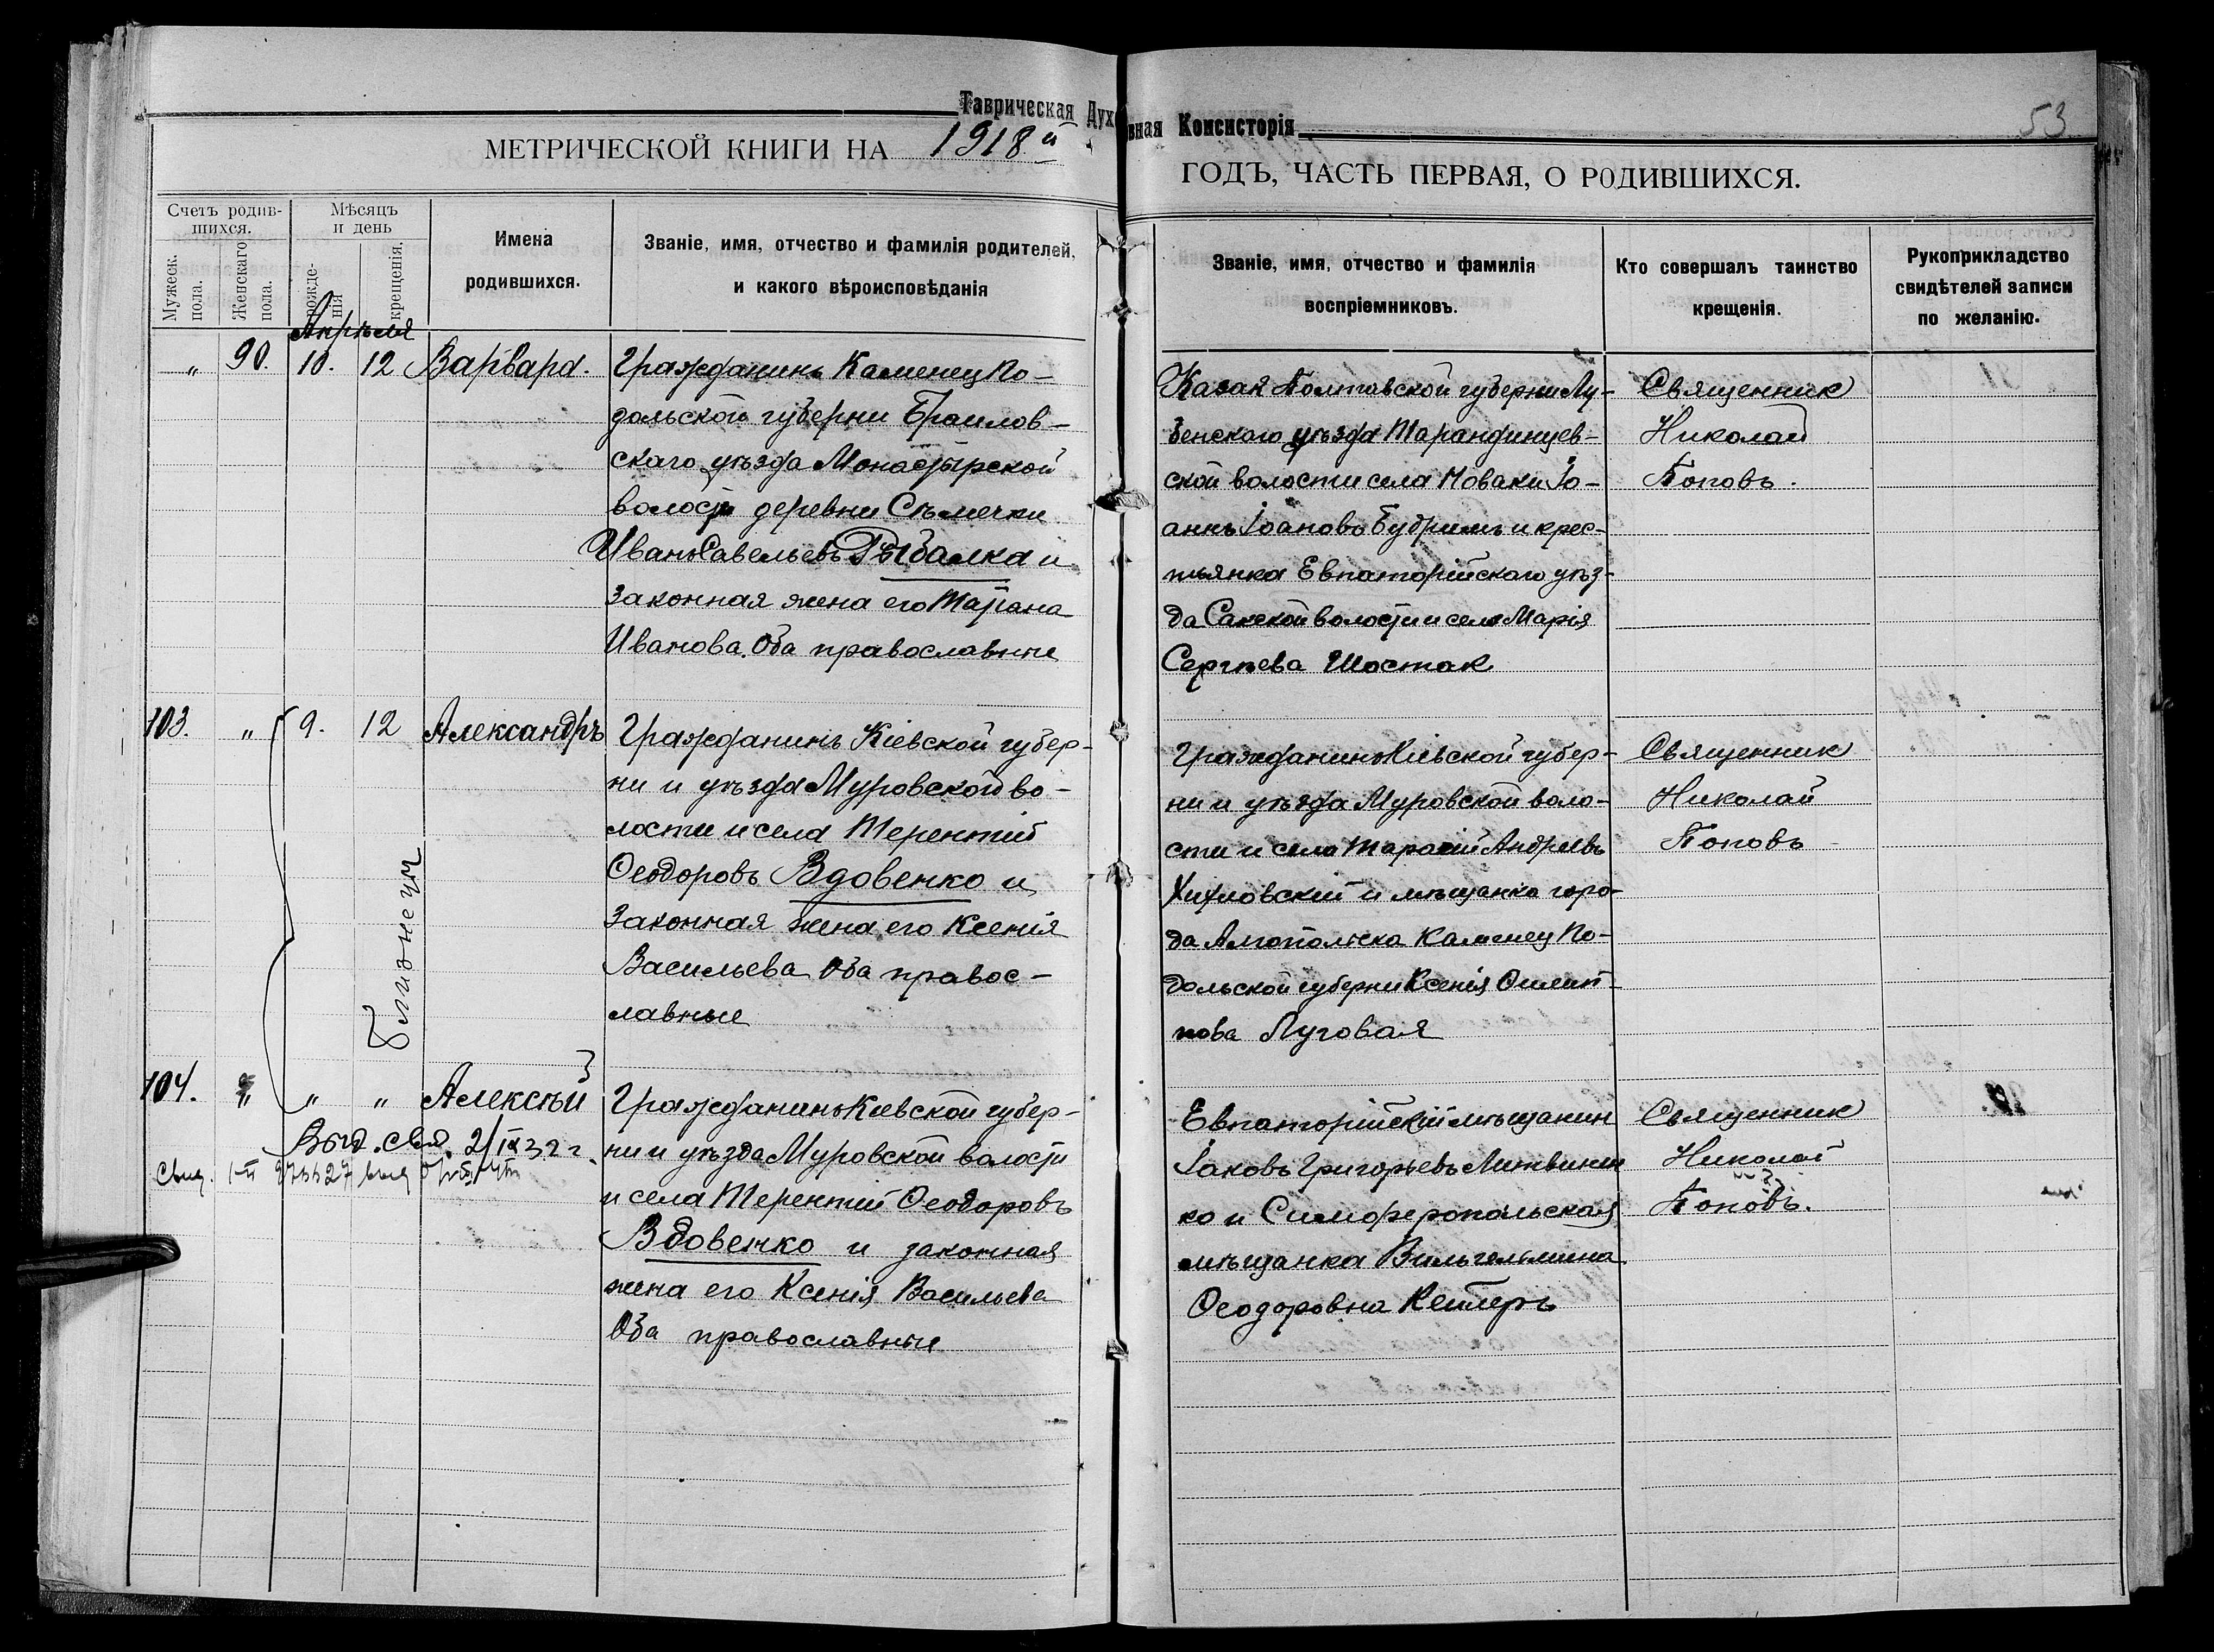 Таврическая Дух
вная Консисторія
53
МЕТРИЧЕСКОЙ КНИГИ НА 1918 й
ГОДЪ, ЧАСТЬ ПЕРВАЯ, О РОДИВШИХСЯ.
Счетъ родив-
шихся.
Мужеск.
пола.
Женскаго
пола.
Мѣсяцъ
и день
рожде-
нія
крещенія.
Имена
родившихся.
Званіе, имя, отчество и фамилія родителей,
и какого вѣроисповѣданія
Званіе, имя, отчество и фамилія
воспріемниковъ.
Кто совершалъ таинство
крещенія.
Рукоприкладство
свидѣтелей записи
по желанію.
Апрѣля
„ 90. 10. 12 Варвара.
Гражданинъ Каменец По-
дольской губерни Браилов-
скаго уѣзда Монастырской
волости деревни Сѣмечки
Иванъ Савельевъ Рыбалка и
законная жена его Татіана
Иванова. Оба православные
Казак Полтавской губерни Лу-
бенскаго уѣзда Тарандинцев-
ской волости села Новаки Іо-
аннъ Іоановъ Бубримъ и крес-
тьянка Евпаторійскаго уѣз-
да Сакской волости и села Марія
Сергѣева Шостак
Священник
Николай
Поповъ.
103. „ 9. 12 Александръ
Близнецы
Гражданинъ Кіевской губер-
ни и уѣзда Муровской во-
лости и села Терентій
Ѳеодоровъ Вдовенко и
законная жена его Ксенія
Васильева Оба правос-
лавные
Гражданинъ Кіевской губер-
ни и уѣзда Муровской воло-
сти и села Тарасій Андреевъ
Хихловскій и мѣщанка горо-
да Ямпольска Каменец По-
дольской губерни Ксенія Осип-
пова Луговая
Священник
Николай
Поповъ
104. „ „ „ Алексѣй
Выд. свид. 2/IX 32 г.
Гражданинъ Кіевской губер-
ни и уѣзда Муровской волости
и села Терентій Ѳеодоровъ
Вдовенко и законная
жена его Ксенія Васильева
Оба православные
Евпаторійскій мѣщанин
Іаковъ Григорьевъ Литвинен
ко и Симферопольская
мѣщанка Вильгельмина
Ѳеодоровна Рейтеръ
Священник
Николай
Поповъ.